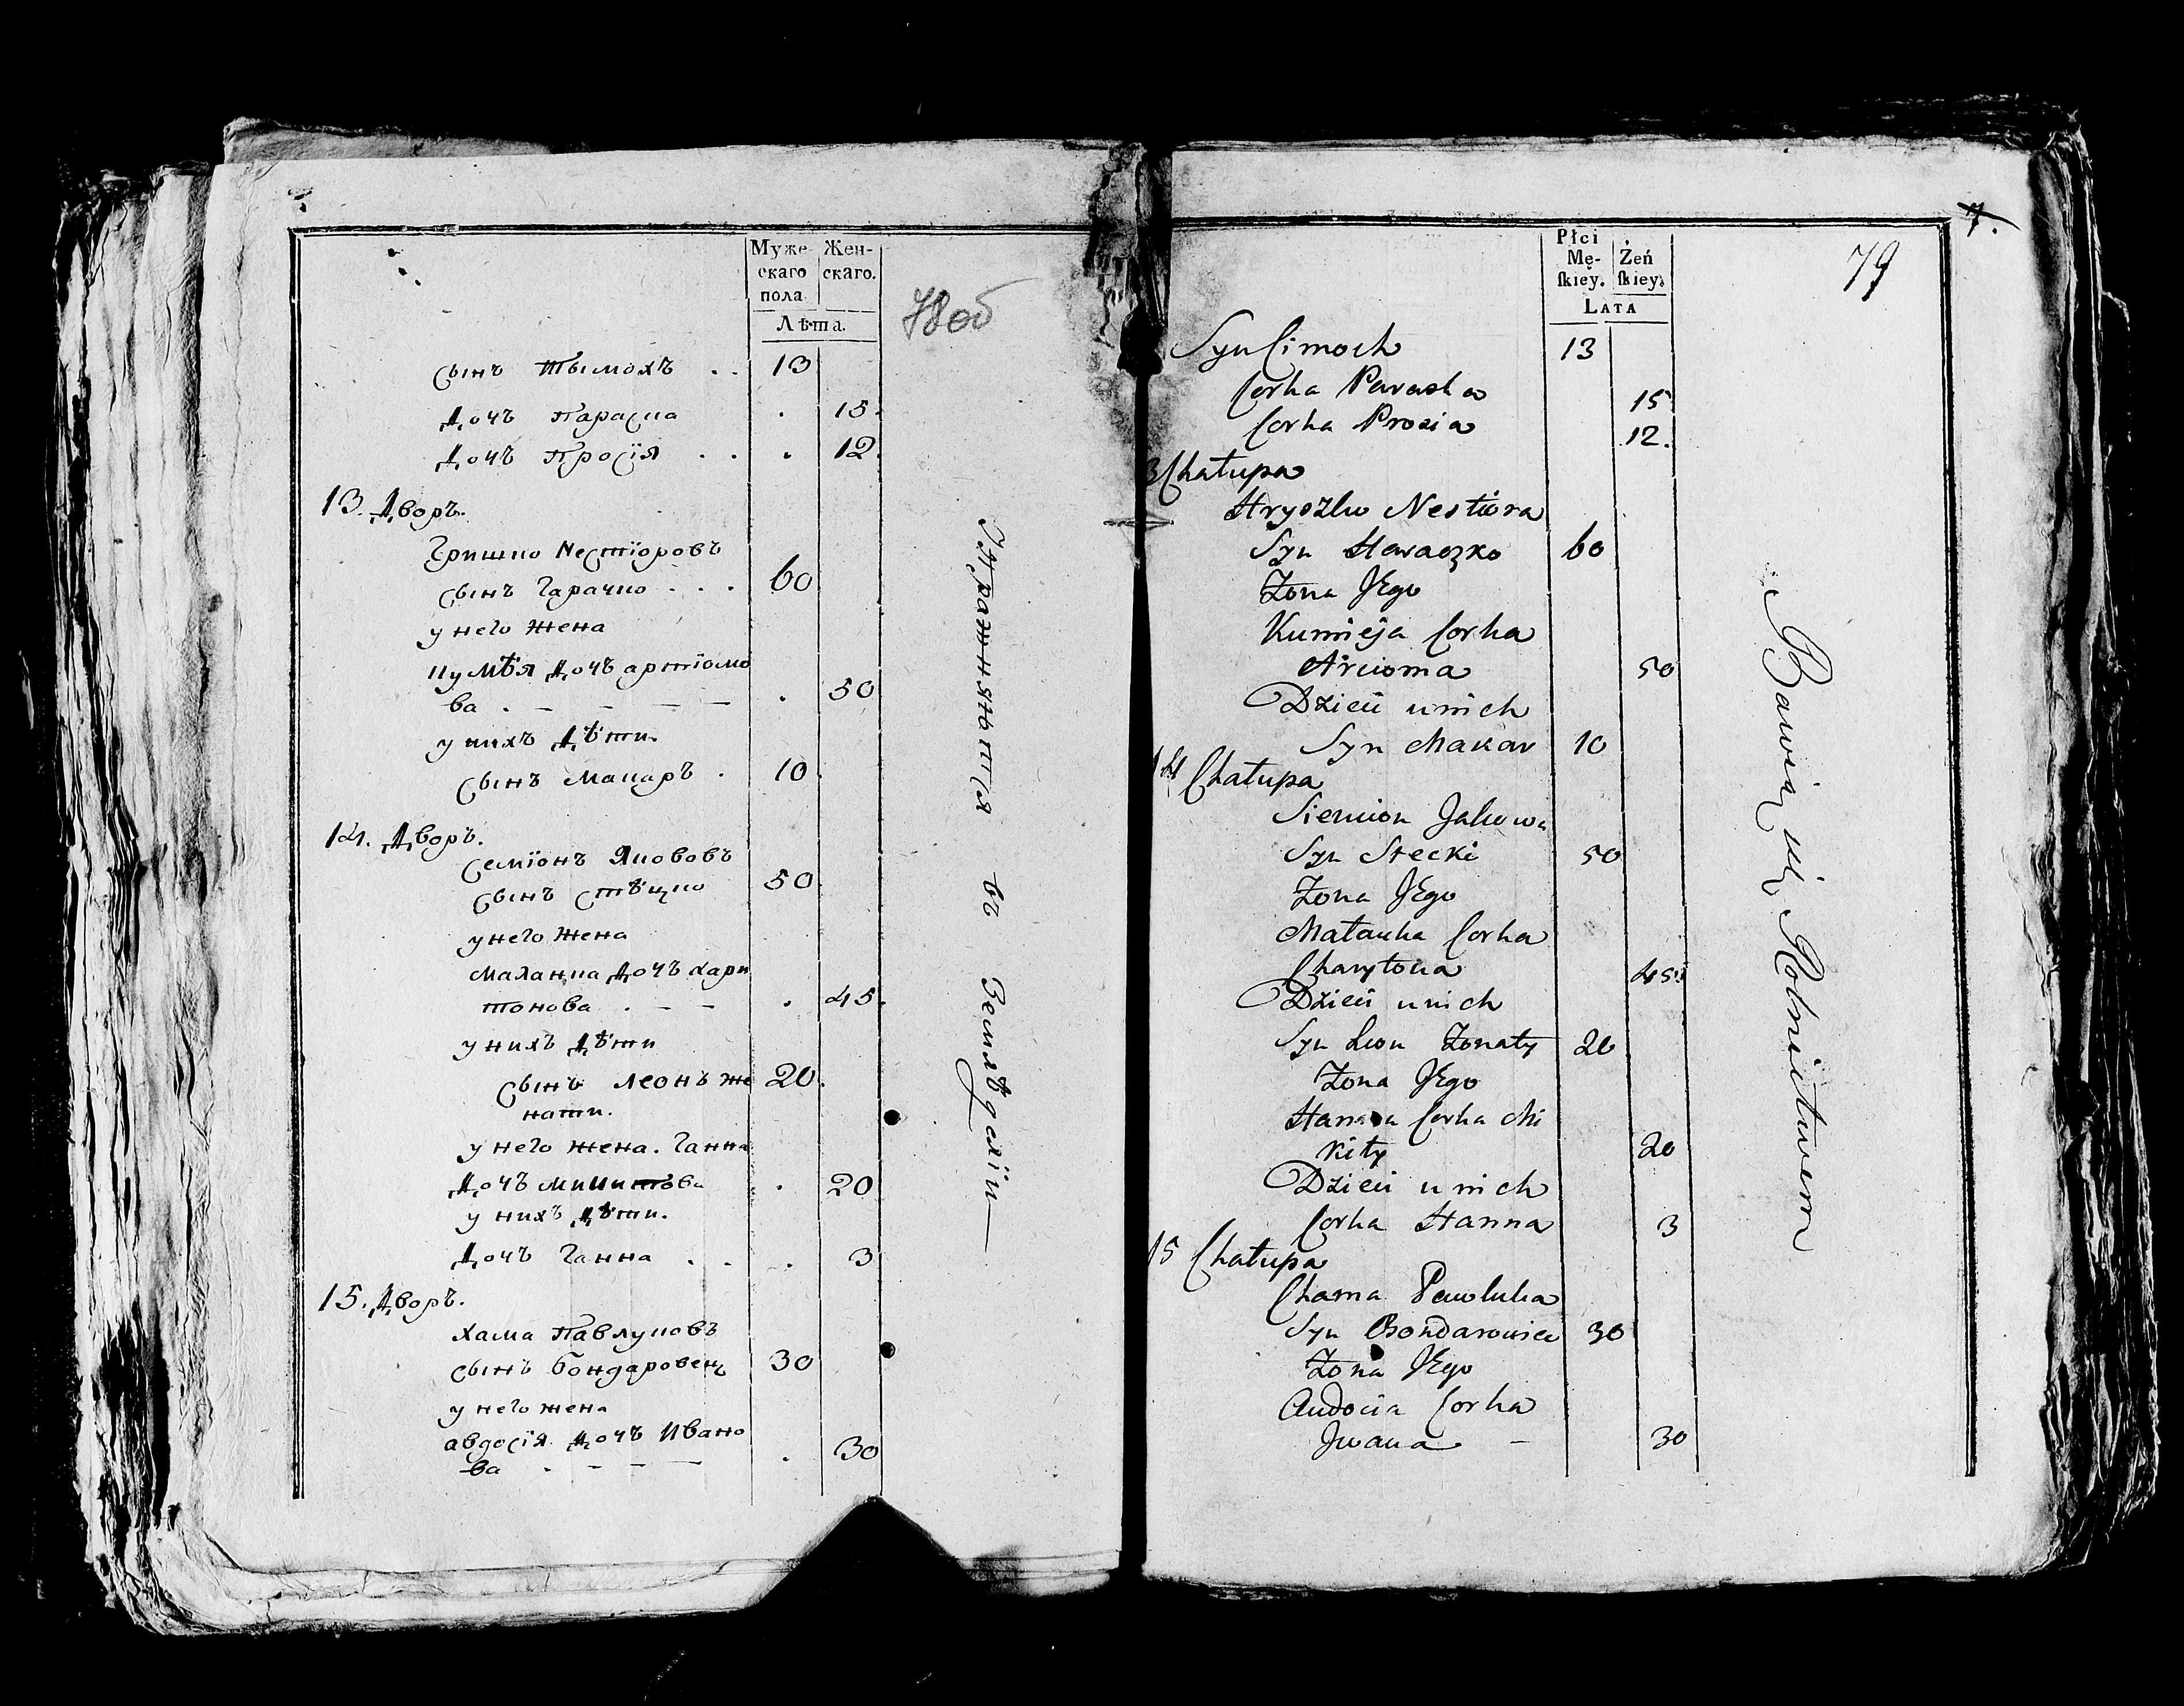 Муже-
скаго
пола.
Жен-
скаго.
Лѣта.
78об
сынъ Тымохъ . . 13
дочъ Параска . 15.
дочъ Просія . . . 12.
13. Дворъ.
Гришко Нестіоровъ
сынъ Гарачко . . . 60
у него жена
Кумѣя дочъ артіомо
ва . — — — — . 50
у нихъ дѣти.
сынъ Макаръ . 10.
14. Дворъ.
Семіонъ Якововъ
сынъ Стѣцко 50
у него жена
Маланка дочъ хари
тонова . — — . 45.
у нихъ дѣти
сынъ леонъ же 20.
нати.
у него жена. Ганна
дочъ микитова . 20
у нихъ дѣти.
дочъ Ганна . . . 3
15. Дворъ.
Хама Павлуковъ
сынъ бондаровецъ 30
у него жена
авдосія дочъ Ивано
ва . — — — . 30
въ Земледеліи
7.
79
Płci
Mę-
ſkiey.
Żeń
ſkiey.
LATA
Syn Cimoch 13
Corka Paraska 15
Corka Prosia 12.
3 Chałupa
Hryszko Nestiora
Syn Haraczko 60
Żona JEgo
Kumieja Corka
Arcioma 50
Dzieci u nich
Syn Makar 10
14 Chałupa
Siemion Jakowa
Syn Stecki 50
Żona JEgo
Małanka Corka
Charytona 45
Dzieci u nich
Syn Leon Żonaty 20
Żona JEgo
Hanna Corka Mi
kity 20
Dzieci u nich
Corka Hanna 3
15 Chałupa
Chama Pawluka
Syn Bondarowiec 30
Żona JEgo
Audocia Corka
Jwana — 30
Bawią się Rolnictwem